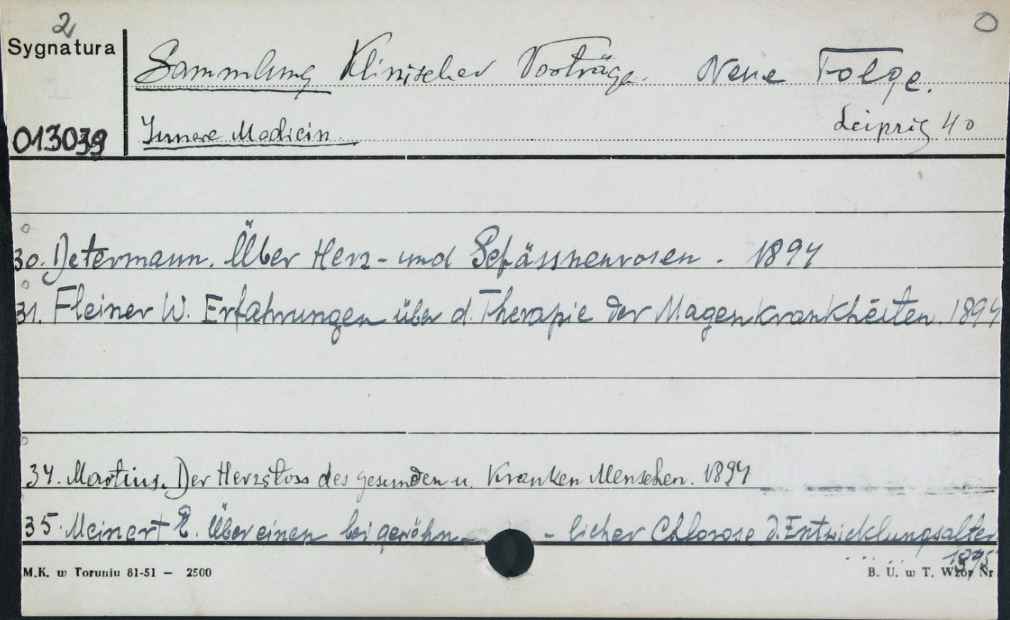 2
O
Sygnatura
Sammlung Klinischer Vorträge. Neue Folge.
013039
Innere Medicin
Leipzig 4o
30. Determann. Über Herz- und Gefässneurosen. 1894
31. Fleiner W. Erfahrungen über d. Therapie der Magenkrankheiten. 1894
34. Martius. Der Herzstoss des gesunden u. Kranken Menschen. 1894
35. Meinert E. Über einen bei gewöhn- licher Chlorose d. Entwicklungsalter
1895
M.K. w Toruniu 81-51 — 2500
B. U. w T. Wzór Nr